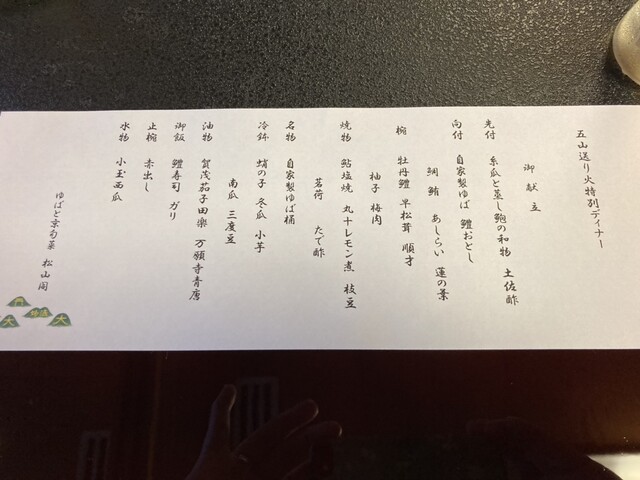 五山送り火特別ディナー
御献立
先付 糸瓜と蒸し鮑の和物 土佐酢
向付 自家製ゆば 鱧おとし
鯛 鮪 あしらい 蓮の葉
椀 牡丹鱧 早松茸 順才
柚子 梅肉
焼物 鮎塩焼 丸十レモン煮 枝豆
茗荷 たで酢
名物 自家製ゆば桶
冷鉢 蛸の子 冬瓜 小芋
南瓜 三度豆
油物 賀茂茄子田楽 万願寺青唐
御飯 鱧寿司 ガリ
止椀 赤出し
水物 小玉西瓜
ゆばと京旬菜 松山閣
大
大